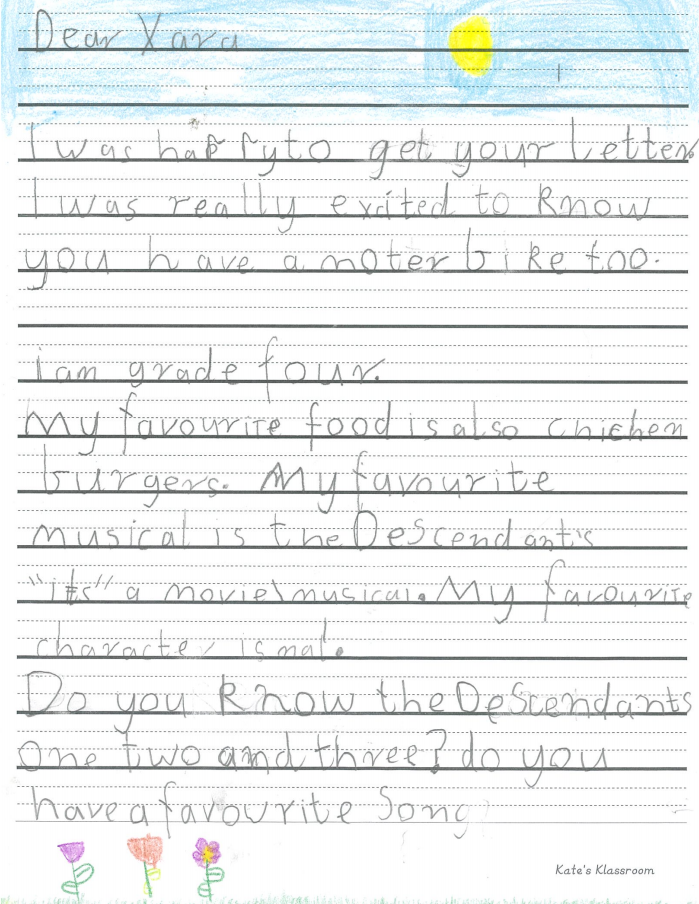 Dear Xara
I was happy to get your letter.
I was really excited to know
you have a moter bike too.
i am grade four.
My favourite food is also chichen
burgers. My favourite
musical is the Descendant's
"its" a movie\musical. My favourite
character is mal.
Do you know the Descendants
one two and three? do you
have a favourite song
Kate's Klassroom